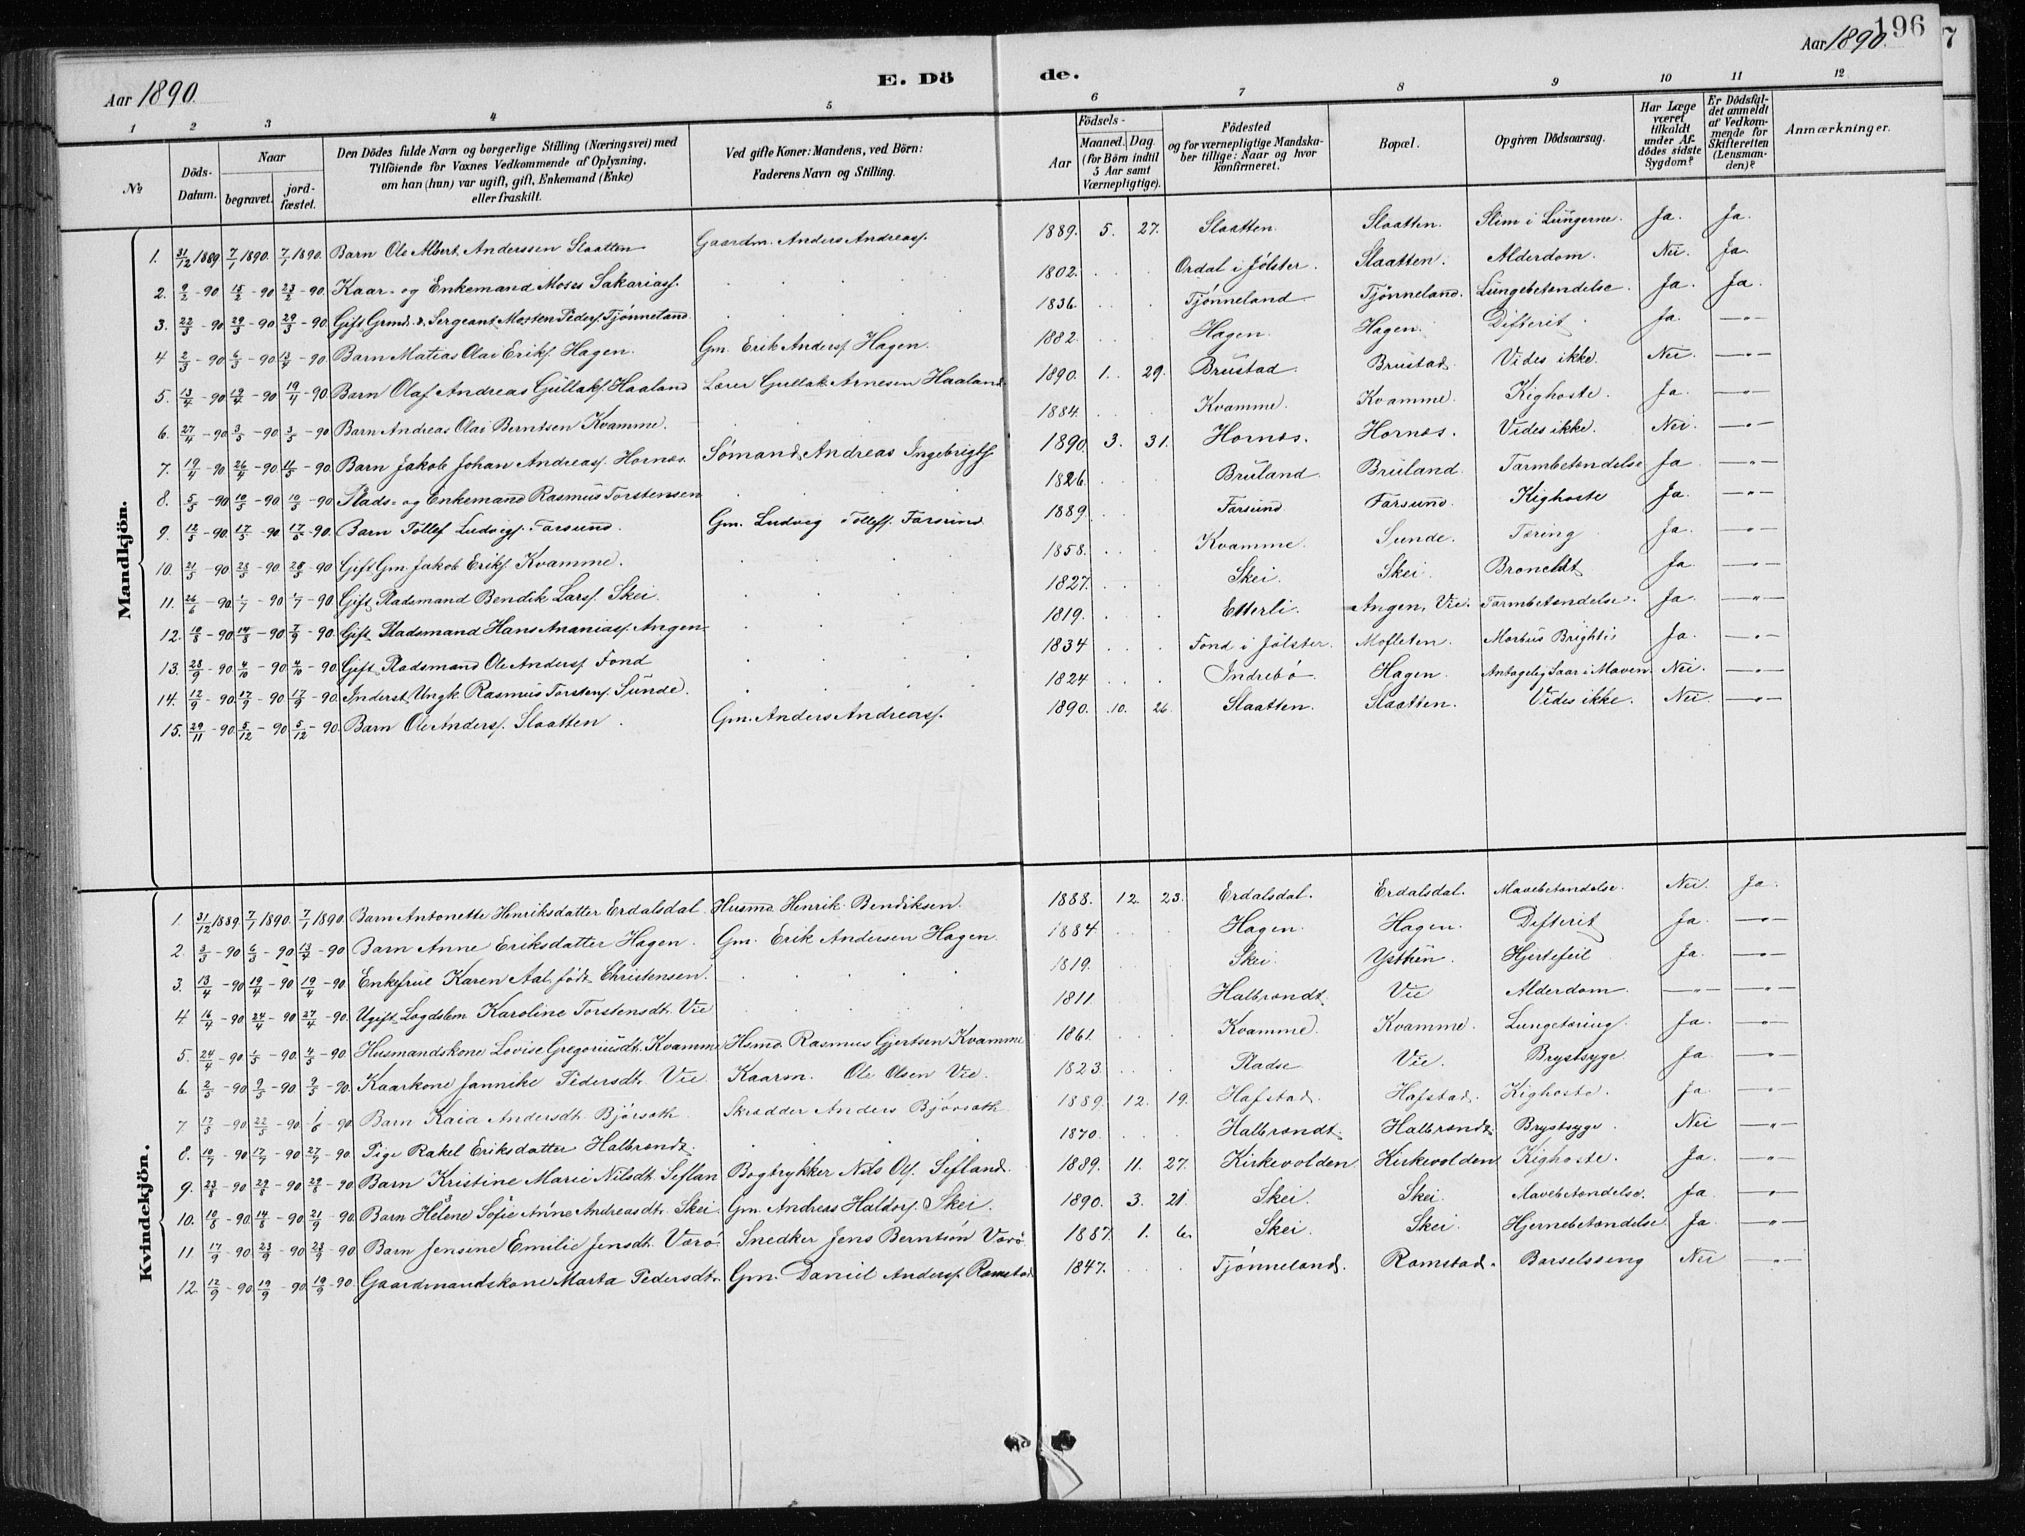 196
7
Aar 1890.
E. Dö de.
Aar 1890.
1 2 3 4 5 6 7 8 9 10 11 12
№ Döds-Datum. Naar begravet. jord-fæstet. Den Dödes fulde Navn og borgerlige Stilling (Næringsvei) med Tilföiende for Voxnes Vedkommende af Oplysning, om han (hun) var ugift, gift, Enkemand (Enke) eller fraskilt. Ved gifte Koner: Mandens, ved Börn: Faderens Navn og Stilling. Födsels- Aar Maaned. Dag (for Börn indtil 5 Aar samt Værnepligtige). Födested og for værnepligtige Mandskaber tillige: Naar og hvor konfirmeret. Bopæl. Opgiven Dödsaarsag. Har Læge været tilkaldt under Afdödes sidste Sygdom? Er Dödsfaldet anmeldt af Vedkommende for Skifteretten (Lensmanden)? Anmærkninger.
Mandkjön.
1. 31/12 1889 7/1 1890. 7/1 1890. Barn Ole Albert Anderssen Slaatten Gaardm. Anders Andreasf. 1889. 5. 27. Slaatten. Slaatten. Slim i Lungerne. Ja. Ja.
2. 9/2 - 90 15/2 - 90 23/2 - 90. Kaar- og Enkemand Moses Sakariasf. 1802. Ordal i Jølster. Slaatten. Alderdom. Nei. Ja.
3. 22/3 - 90 29/3 - 90 29/3 - 90. Gift Grmd. & Sergeant Morten Pedersf. Tjønneland 1836. Tjønneland Tjønneland. Lungebetændelse. Ja. Ja.
4 2/3 - 90 6/3 - 90 13/4 - 90. Barn Matias Olai Eriksf. Hagen. Gm. Erik Andersf. Hagen. 1882. Hagen. Hagen. Difterit. Ja. —"—
5. 13/4 - 90 19/4 - 90 19/4 - 90. Barn Olaf Andreas Gullaksf. Haaland Lærer Gullak Arnesen Haaland. 1890. 1. 29. Brustad. Brustad. Vides ikke. Nei. —"—
6. 27/4 - 90 3/5 - 90 3/5 - 90 Barn Andreas Olai Berntsen Kvamme. 1884. Kvamme. Kvamme. Kighoste. Ja. —"—
7. 19/4 - 90 26/4 - 90 11/5 - 90. Barn Jakob Johan Andreasf. Hornes. Sømand Andreas Ingebrigtsf. 1890. 3. 31. Hornes. Hornes. Vides ikke. Nei. —"—
8. 5/5 - 90 10/5 - 90 10/5 - 90 Plads- og Enkemand Rasmus Torstensen 1826. Bruland. Bruland. Tarmbetændelse Ja. —"—
9. 12/5 - 90 17/5 - 90. 17/5 - 90. Barn Tollef Ludvigsf. Farsund. Gm. Ludvig Tollefsf. Farsund. 1889. Farsund Farsund. Kighoste Ja. —"—
10. 21/5 - 90 28/5 - 90 28/5 - 90 Gift Gm. Jakob Eriksf. Kvamme. 1858. Kvamme. Sunde. Tæring Ja. —"—
11. 26/6 - 90. 1/7 - 90 1/7 - 90. Gift Pladsmand Bendik Larsf. Skei. 1827. Skei. Skei. Ja. —"—
12. 10/8 - 90. 14/8 - 90 7/9 - 90. Gift Pladsmand Hans Ananiasf. Angen 1819. Etterli. Angen, Vie. Tarmbetændelse. Ja. —"—
13. 28/9 - 90 4/10 - 90 4/10 - 90 Gift Pladsmand Ole Andersf. Fond 1834 Fond i Jølster. Mofleten. Morbus Brightii Ja. —"—
14. 12/9 - 90. 17/9 - 90 17/9 - 90. Inderst Ungk. Rasmus Torstensf. Sunde. 1824 Indrebö Hagen. Antagelig Saar i Maven Nei. —"—
15. 29/11 - 90. 5/12 - 90 5/12 - 90. Barn Ole Andersf. Slaatten. Gm. Anders Andreasf. 1890. 10. 26. Slaatten. Slaatten. Vides ikke. Nei. —"—
Kvindekjön.
1. 31/12 1889. 7/1 1890. 7/1 1890. Barn Antonette Henriksdatter Erdalsdal. Husmd. Henrik Bendiksen. 1888. 12. 23. Erdalsdal. Erdalsdal. Mavebetændelse. Nei. Ja.
2. 3/3 - 90 6/3 - 90 13/4 - 90 Barn Anne Eriksdatter Hagen. Gm. Erik Andersen Hagen. 1884 Hagen. Hagen. Difterit Ja. —"—
3. 13/4 - 90 19/4 - 90 19/4 - 90. Enkefrue Karen Aal, født Christensen. 1819. Skei. Hjertefeil Ja. —"—
4. 16/4 - 90 24/4 - 90 27/4 - 90. Ugift Lægdslem Karoline Torstensdt. Vie 1811 Halbrændt Vie Alderdom. —"— —"—
5. 24/4 - 90 1/5 - 90 4/5 - 90. Husmandskone Lovise Gregoriusdt. Kvamme Hsmd. Rasmus Gjertsen Kvamme 1861. Kvamme. Kvamme. Lungetæring. Ja. —"—
6 2/5 - 90 9/5 - 90. 9/5 - 90. Kaarkone Jannike Pedersdt. Vie. Kaarm. Ole Olsen Vie. 1823 Pladse Vie. Brystsyge Ja. —"—
7 17/5 - 90 22/5 - 90 1/6 - 90 Barn Kaia Andersdt. Bjørsæth. Skrædder Anders Bjørsæth 1889. 12. 19. Hafstad. Hafstad. Kighoste. Ja. —"—
8. 10/7 - 90 17/7 - 90 27/7 - 90. Pige Rakel Eriksdatter Halbrendt. 1870. Halbrændt. Halbrændt. Brystsyge. Nei —"—
9. 23/8 - 90 29/8 - 90 29/8 - 90. Barn Kristine Marie Nilsdt. Sefland Bogtrykker Nils Olsf. Sefland. 1889. 11. 27. Kirkevolden Kirkevolden. Kighoste. Ja. —"—
10. 10/8 - 90. 14/8 - 90 21/9 90. Barn Helene Sofie Anne Andreasdt. Skei. Gm. Andreas Haldorsf. Skei. 1890. 3. 21. Skei. Skei. Mavebetændelse. Ja —"—
11. 17/9 - 90 23/9 - 90 23/9 - 90 Barn Jensine Emilie Jensdt. Værø. Snedker Jens Berntsön Værö 1887. 1. 6. Skei. Skei. Hjernebetændelse. Ja. —"—
12. 12/9 - 90. 19/9 - 90. 19/9 - 90. Gaardmandskone Marta Pedersdt. Gm. Daniel Andersf. Ramstad 1847. Tjønneland. Ramstad. Barselsseng Nei —"—